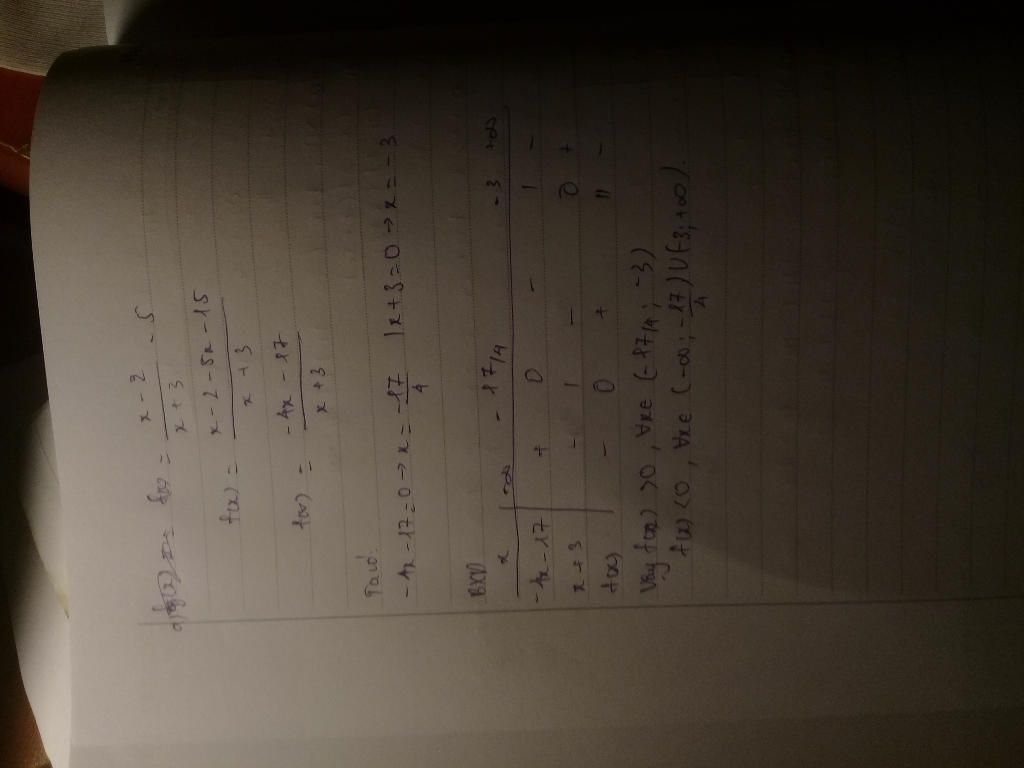 f(x) = x - 2 / x + 3 - 5
f(x) = x - 2 - 5x - 15 / x + 3
f(x) = -4x - 17 / x + 3
-4x - 17 = 0 → x = -17/4 | x + 3 = 0 → x = -3
BXD
x -∞ -17/4 -3 +∞
-4x - 17 + 0 - | -
x + 3 - | - 0 +
f(x) - 0 + || -
Vậy f(x) > 0, ∀x∈ (-17/4; -3)
f(x) < 0, ∀x∈ (-∞; -17/4) U (-3; +∞).